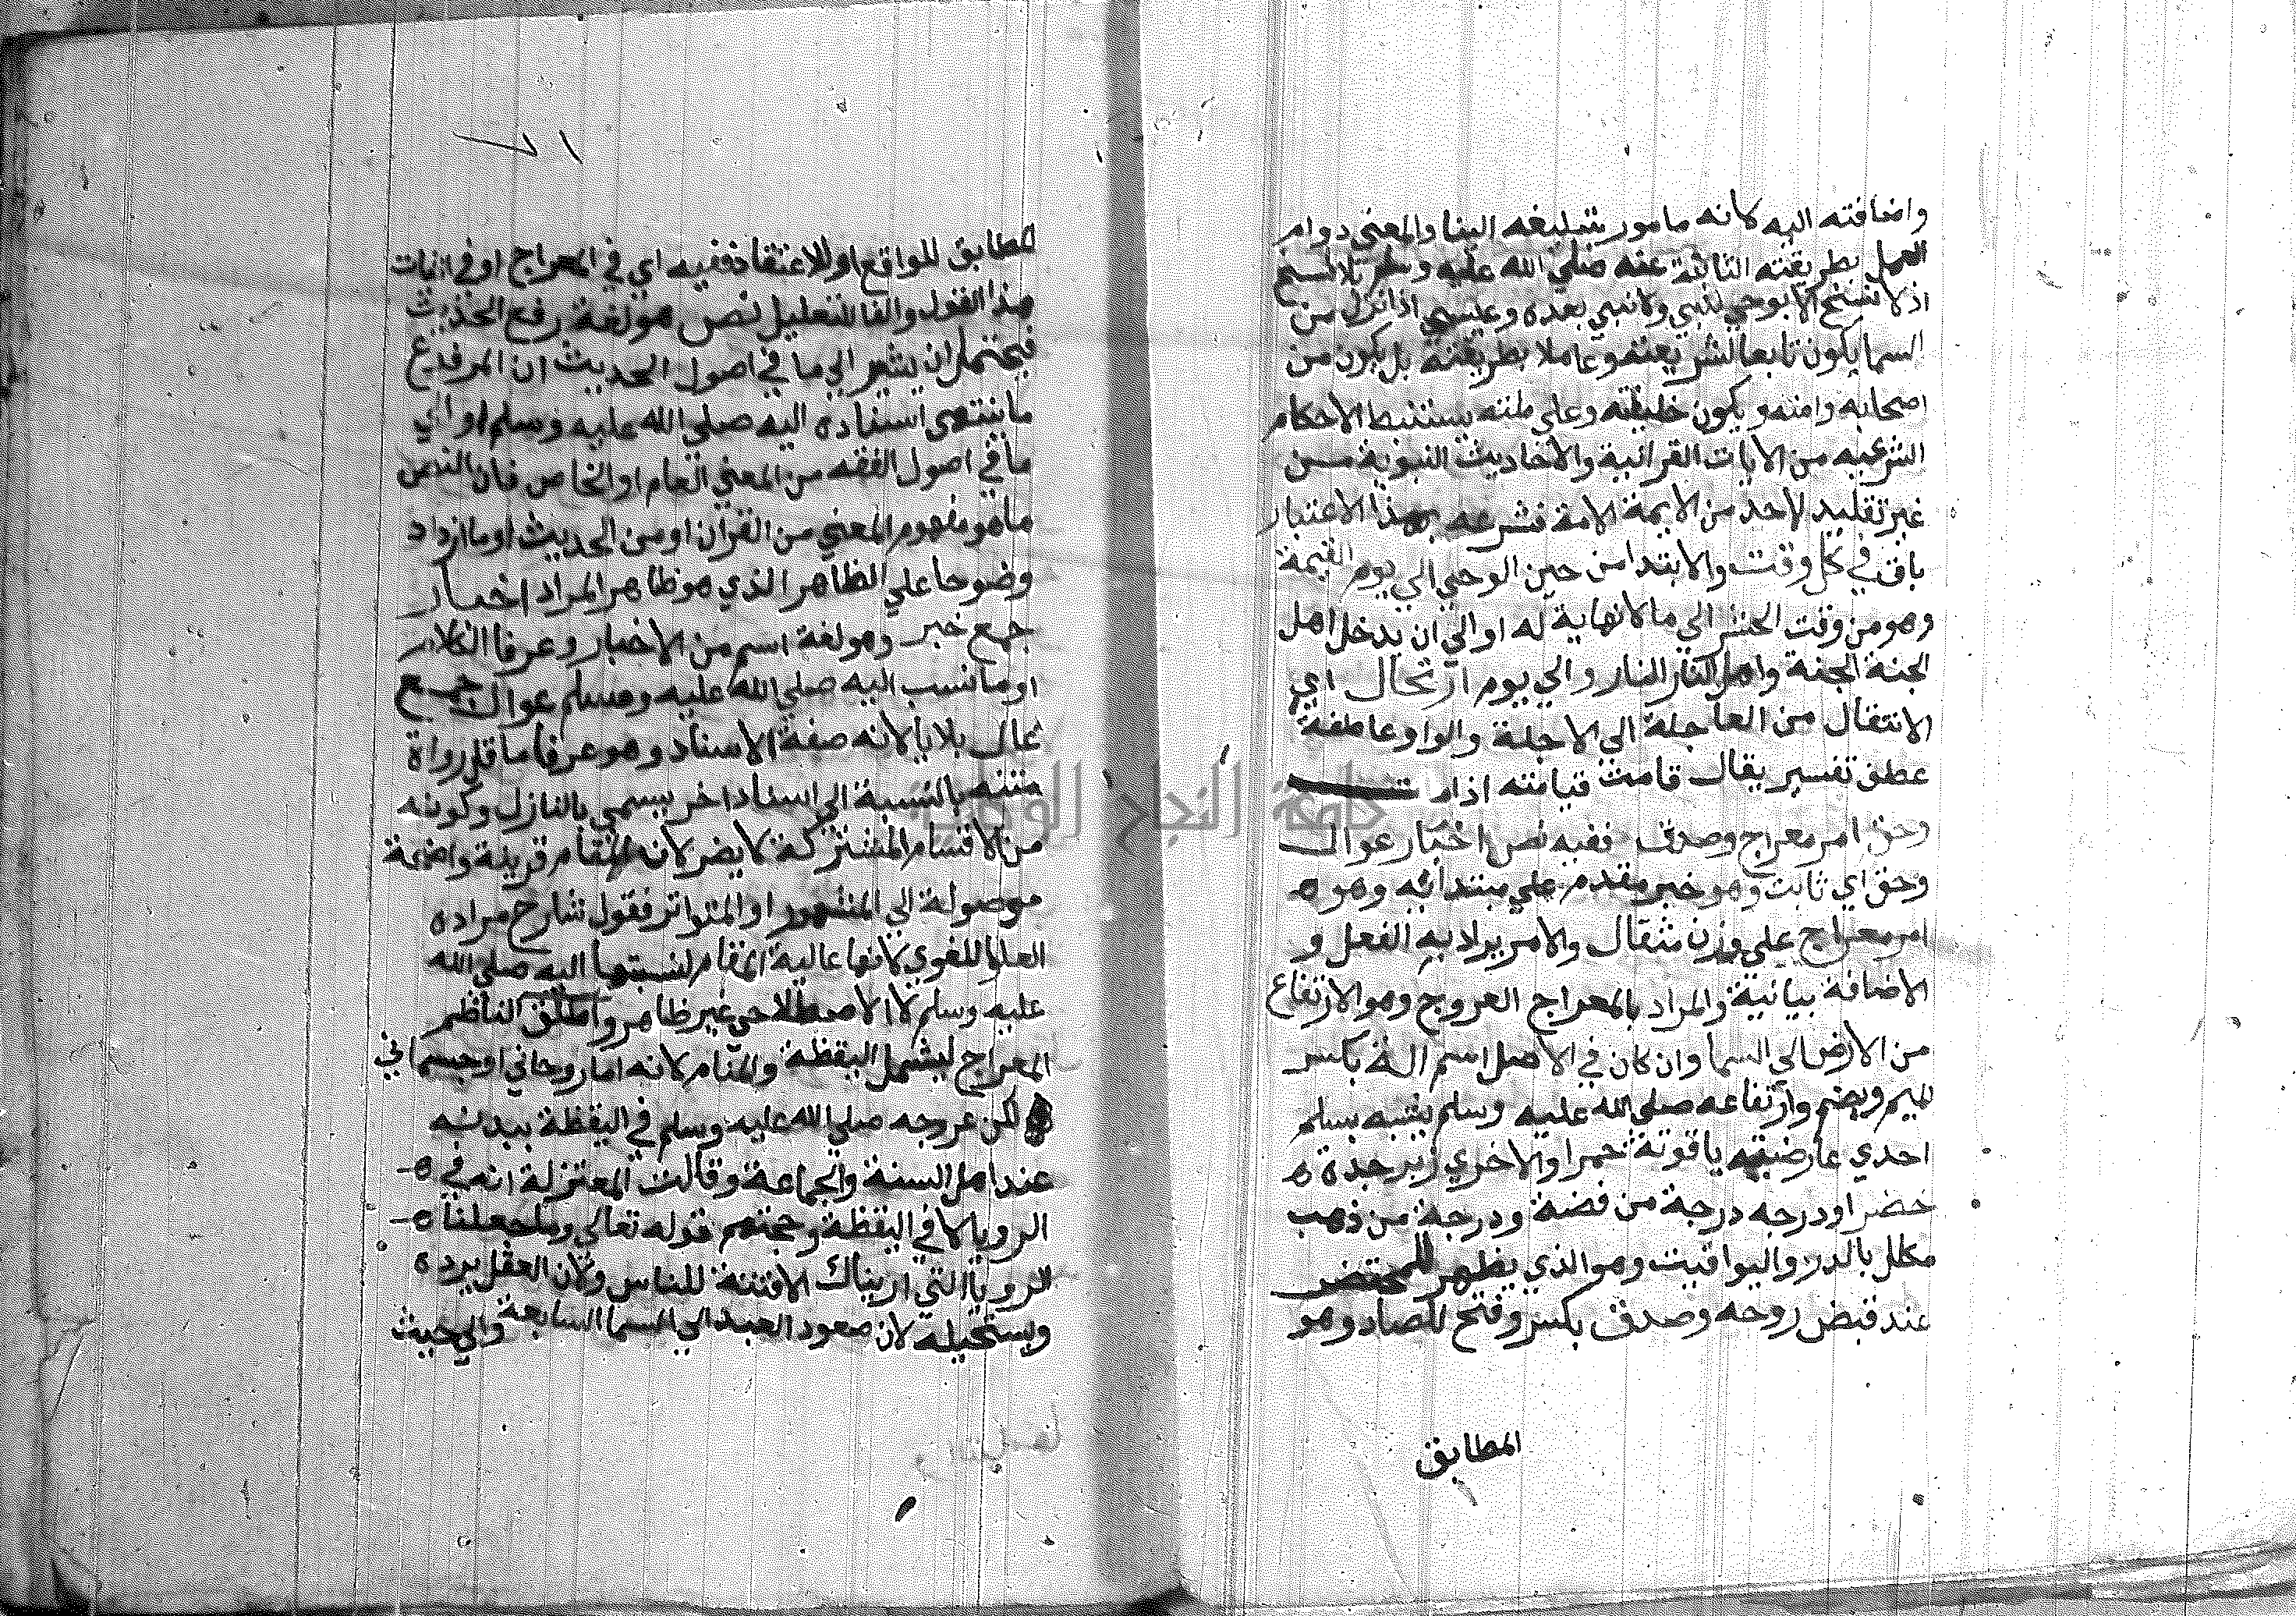 واضافته اليه لانه مامور بتبليغه الينا والمعني دوام
العمل بطريقته الثابتة عنه صلي الله عليه وسلم بلا نسخ
اذ لا نسخ الا بوحي لنبي ولا نبي بعده وعيسي اذا نزل من
السما يكون تابعا لشريعته وعاملا بطريقته بل يكون من
اصحابه وامته ويكون خليفته وعلي ملته يستنبط الاحكام
الشرعيه من الايات القرانية والاحاديث النبوية من
غير تقليد لاحد من الايمة الامة فشرعه بهذا الاعتبار
باق في كل وقت والابتدا من حين الوحي الي يوم القيمة
وهو من وقت الحشر الي ما لا نهاية له او الي ان يدخل اهل
الجنة الجنة واهل النار النار والي يوم ارتحال اي
الانتقال من العاجلة الي الاجلة والواو عاطفة
عطف تفسير يقال قامت قيامته اذا
وحق امر معراج وصدق ففيه نص اخبار عوال
وحق اي ثابت وهو خبر مقدم علي مبتدائه وهو ه
امر معراج علي وزن مثقال والامر يراد به الفعل و
الاضافة بيانية والمراد بالمعراج العروج وهو الارتفاع
من الارض الي السما وان كان في الاصل اسم الة بكسر
الميم ويضم وارتفاعه صلي الله عليه وسلم بسلم
احدي عارضتيه ياقوتة حمرا والاخري زبرجدة ه
خضرا ودرجه درجة من فضة ودرجة من ذهب
مكلل بالدر واليواقيت وهو الذي يظهر للمحتضر
عند قبض روحه وصدق بكسر وفتح للصاد وهو
المطابق
٧١
المطابق للواقع او للاعتقاد ففيه اي في المعراج او في اثبات
هذا القول والفا للتعليل نص هو لغة رفع الحديث
فيحتمل ان يشير الي ما في اصول الحديث ان المرفوع
ما ينتهي اسناده اليه صلي الله عليه وسلم او الي
ما في اصول الفقه من المعني العام او الخاص فان النص
ما هو مفهوم المعني من القران او من الحديث او ما ازداد
وضوحا علي الظاهر الذي هو ظاهر المراد اخبار
جمع خبر وهو لغة اسم من الاخبار وعرفا الكلام
او ما نسب اليه صلي الله عليه وسلم عوال جمع
عال بلا يا لانه صفة الاسناد وهو عرفا ما قل رواة
متنه بالنسبة الي اسناد اخر يسمي بالنازل وكونه
من الاقسام المشتركة لا يضر لانه المقام قرينة واضحة
موصولة الي المشهور او المتواتر فقول شارح مراده
العلو اللغوي لانها عالية المقام لنسبتها اليه صلي الله
عليه وسلم لا الاصطلاحي غير ظاهر واطلق الناظم
المعراج ليشمل اليقظة والمنام لانه اما روحاني او جسماني
لكن عروجه صلي الله عليه وسلم في اليقظة ببدنه
عند اهل السنة والجماعة وقالت المعتزلة انه في ه
الرويا لا في اليقظة وحجتهم قوله تعالي وما جعلنا ه
الرويا التي اريناك الا فتنة للناس ولان العقل يرده
ويستحيله لان صعود العبد الي السما السابعة والي حيث
جامعة النجاح الوطنية